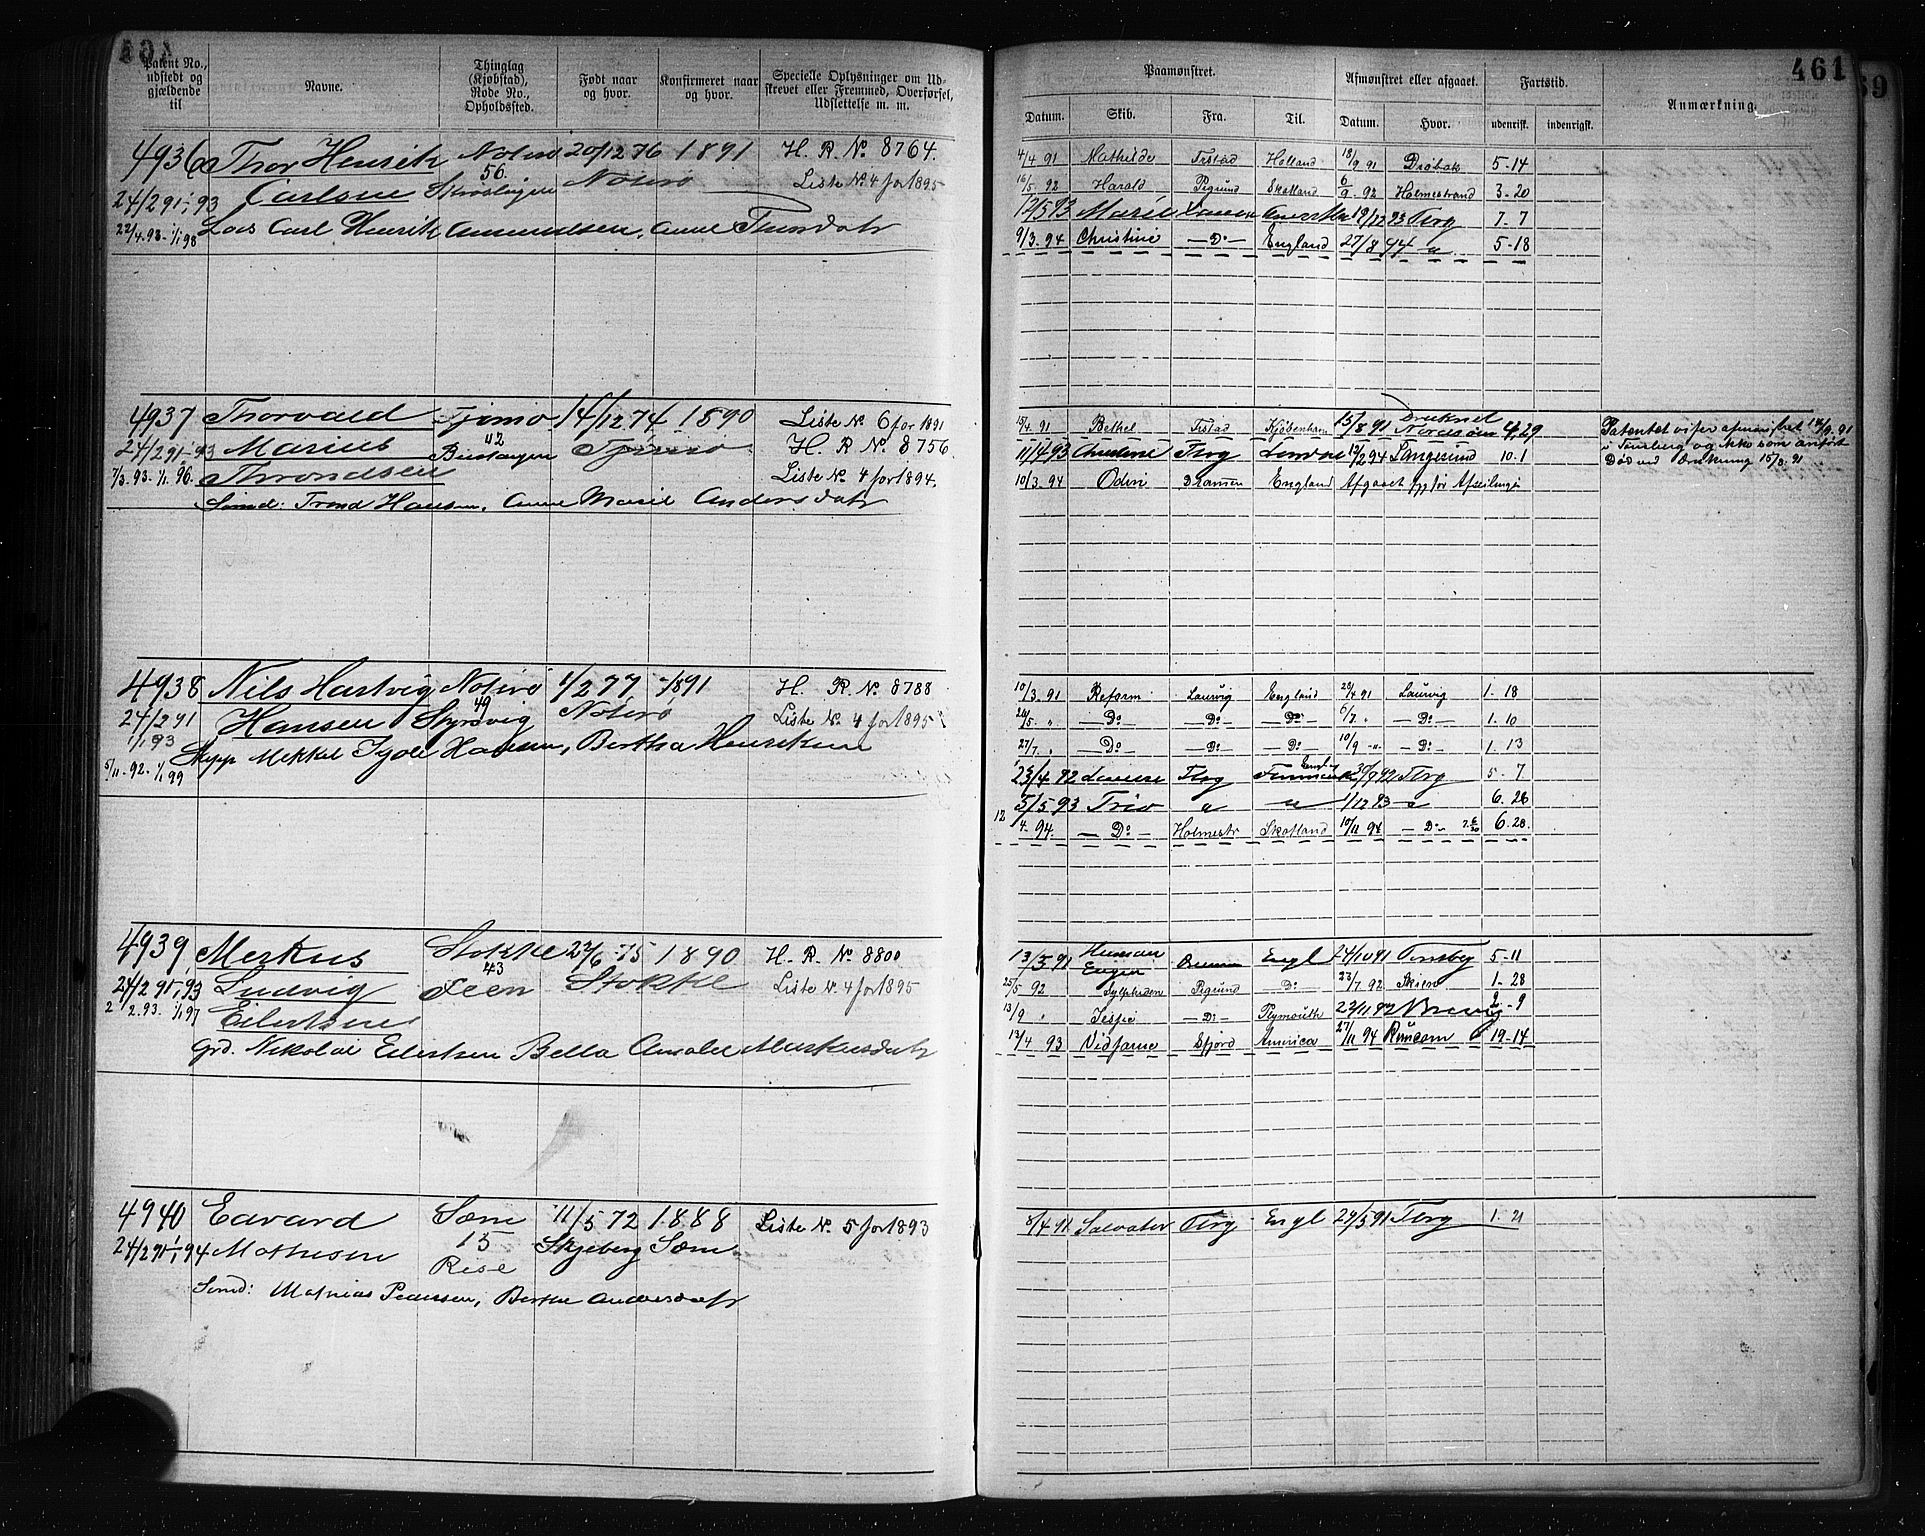 461
Patent No., udstedt og gjældende til
Navne.
Thinglag (Kjøbstad), Rode No., Opholdssted.
Født naar og hvor.
Konfirmeret naar og hvor.
Specielle Oplysninger om Udskrevet eller Fremmed, Overførsel, Udslettelse m. m.
Paamønstret.
Afmønstret eller afgaaet.
Fartstid.
Anmærkning.
Datum. Skib. Fra. Til. Datum. Hvor. udenrigsk. indenrigsk.
4936 Thor Henrik Nøterø 20/12 76 1891 H. R. No. 8764.
24/2 91-1/1 93 Carlsen 56. Nøterø Liste No. 4 for 1895
22/4.93-1/1 98 Los Carl Henrik Amundsen, Anne
4/4 91 Mathilde Frstad Holland 18/9 91 Drøbak 5-14
16/5 92 Harald Pgrund Skotland 6/9 92 Holmestrand 3-20
12/5 93 Marie 19/12 93 Tbrg 7-7
9/3-94 Christine -Do- England 27/8 94 " 5-18
4937 Thorvald Tjømø 14/12 74 1890 Liste No. 6 for 1891
24/2 91-1/1 93 Marius 42 Tjømø H. R. No. 8756.
7/3.93-1/1.96. Throndsen Liste No. 4 for 1894.
Sømd: Trond Hansen, Anne Marie Andersdatr
15/4 91 Bethel Frstad Kjøbenhavn 15/8 91 Druknet Nordsøen 4,29
11/4 93 Christine Tbrg London 13/2 94 Langesund 10.1
10/3.94 Odin Dramen England Afgaaet før Afseilingen
Patentet viser afmønstret 14/9.91
i Tønsberg og ikke som anført
Død ved Drukning 15/8.91
4938 Nils Hartvig Nøterø 1/2 77 -/8 91 H. R. No. 8788
24/2 91 1/1 93 Hansen 49 Styrsvig Nøterø Liste No. 4 for 1895
5/11-92-1/1 99 Skipp Mikkel Hansen, Bertha Henriksen
10/3.91 Reform Laurvig England 28/4 91 Laurvig 1-18
26/5 " -Do- -Do- -Do- 6/7 " -Do- 1.10
27/7 " -Do- -Do- -Do- 10/9 -"- -Do- 1.13
23/4 92 Tbrg Finmark England 30/9 92 Tbrg 5-7
5/5 93 Trio " " 1/12 93 " 6.26
12/4.94. -Do- Holmestr Skotland 10/11 94 -Do- 6.28
4939 Merkus Stokke 22/6 75 1890 H. R. No. 8800
24/2 91-1/1 93 Ludvig 43 Feen Stokke Liste No. 4 for 1895
2/2.93-1/1 97 Eilertsen
Grd. Nikolai Eilertsen Bella Amalie Markusdatr
13/3 91 Herman Engl 24/10 91 Tønsbg 5-11
25/5 92 Sylphiden Pgrund -Do- 23/7 92 Skien 1-28
13/9 " -Do- Plymouth 22/11 92 Brevig 2-9
13/4 93 Vidfarne Sfjord America 27/11 94 Runcorn 19-14
4940 Edvard Sæm 11/5 72 1888 Liste No. 5 for 1893
24/2 91-1/1 94 Mathisen 15 Skjeberg Sæm
Rise
Sømd: Mathias Pedersen, Berthe Andersdatr
8/4 91 Salvator Tbrg Engl 29/5 91 Tbrg 1-21